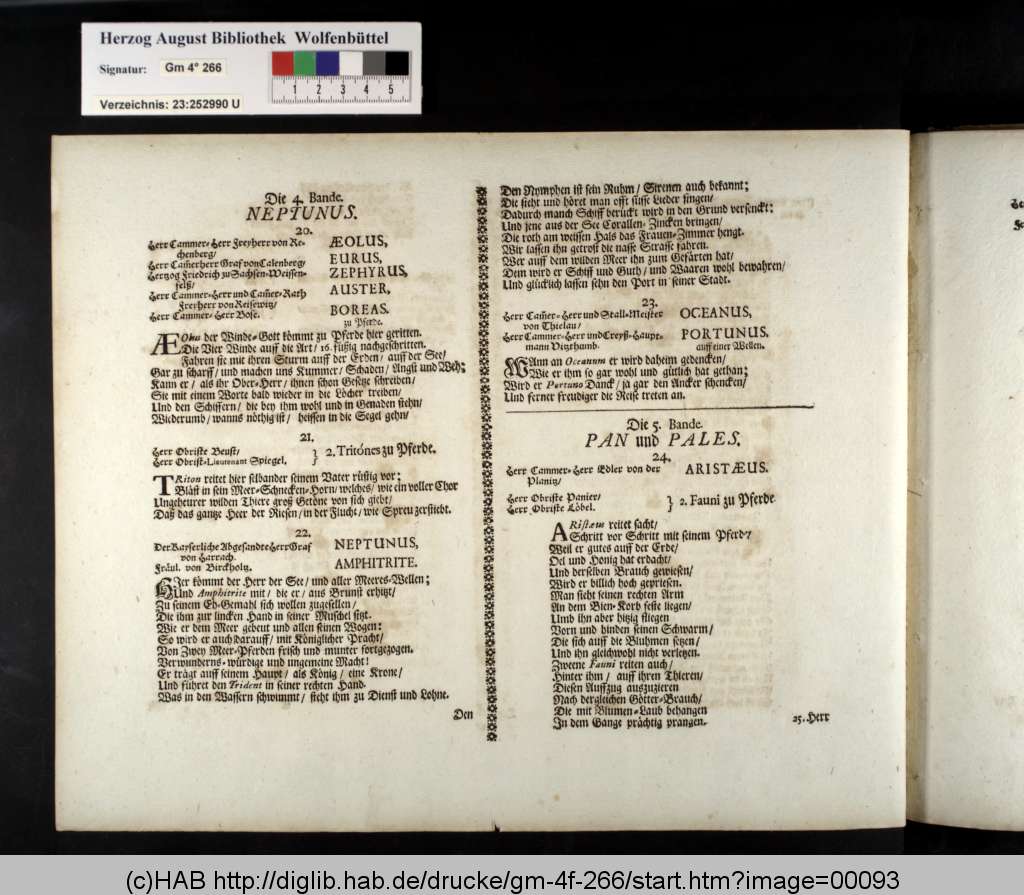 Herzog August Bibliothek Wolfenbüttel
Signatur: Gm 4° 266
Verzeichnis: 23:252990 U
1 2 3 4 5
Die 4. Bande.
NEPTUNUS.
20.
Herr Cammer-Herr Freyherr von Re- ÆOLUS,
chenberg/
Herr Cam̃erherr Graf von Calenberg/ EURUS,
Hertzog Friedrich zu Sachsen-Weissen- ZEPHYRUS,
felß/
Herr Cammer-Herr und Cam̃er-Rath AUSTER,
Freyherr von Reisewitz/
Herr Cammer-Herr Bose. BOREAS.
zu Pferde.
ÆOlus der Winde-Gott kömmt zu Pferde hier geritten.
Die Vier Winde auff die Art/ 16. füßig nachgeschritten.
Fahren sie mit ihren Sturm auff der Erden/ auff der See/
Gar zu scharff/ und machen uns Kummer/ Schaden/ Angst und Weh;
Kann er/ als ihr Ober-Herr/ ihnen schon Gesetze schreiben/
Sie mit einem Worte bald wieder in die Löcher treiben/
Und den Schiffern/ die bey ihm wohl und in Genaden stehn/
Wiederumb/ wanns nöthig ist/ heissen in die Segel gehn/
21.
Herr Obriste Beust/ } 2. Tritónes zu Pferde.
Herr Obrist-Lieutenant Spiegel. }
TRiton reitet hier selbander seinem Vater rüstig vor;
Bläst in sein Meer-Schnecken-Horn/ welches/ wie ein voller Chor
Ungeheurer wilden Thiere groß Getöne von sich giebt/
Daß das gantze Heer der Riesen/ in der Flucht/ wie Spreu zerstiebt.
22.
Der Kayserliche Abgesandte Herr Graf NEPTUNUS,
von Harrach.
Fräul. von Birckholtz. AMPHITRITE.
HJer kömmt der Herr der See/ und aller Meeres-Wellen;
Und Amphitrite mit/ die er/ aus Brunst erhitzt/
Zu seinem Eh-Gemahl sich wollen zugesellen/
Die ihm zur lincken Hand in seiner Muschel sitzt.
Wie er dem Meer gebeut und allen seinen Wogen:
So wird er auch darauff/ mit Königlicher Pracht/
Von Zwey Meer-Pferden frisch und munter fortgezogen.
Verwunderns-würdige und ungemeine Macht!
Er trägt auff seinem Haupt/ als König/ eine Krone/
Und führet den Trident in seiner rechten Hand.
Was in den Wassern schwimmt/ steht ihm zu Dienst und Lohne.
Den
Den Nymphen ist sein Ruhm/ Sirenen auch bekannt;
Die sieht und höret man offt süsse Lieder singen/
Dadurch manch Schiff berückt wird in den Grund versenckt:
Und jene aus der See Corallen-Zincken bringen/
Die roth am weissen Hals das Frauen-Zimmer hengt.
Wir lassen ihn getrost die nasse Strasse fahren.
Wer auff dem wilden Meer ihn zum Gefärten hat/
Dem wird er Schiff und Guth/ und Waaren wohl bewahren/
Und glücklich lassen sehn den Port in seiner Stadt.
23.
Herr Cam̃er-Herr und Stall-Meister OCEANUS,
von Thielau/
Herr Cammer-Herr und Creyß-Haupt- PORTUNUS.
mann Vitzthumb. auff einer Wellen.
WAnn an Oceanum er wird daheim gedencken/
Wie er ihm so gar wohl und gütlich hat gethan;
Wird er Portuno Danck/ ja gar den Ancker schencken/
Und ferner freudiger die Reise treten an.
Die 5. Bande.
PAN und PALES.
24.
Herr Cammer-Herr Edler von der ARISTÆUS.
Planitz/
Herr Obriste Panier/ } 2. Fauni zu Pferde
Herr Obriste Löbel. }
ARistæus reitet sacht/
Schritt vor Schritt mit seinem Pferd/
Weil er gutes auff der Erde/
Oel und Honig hat erdacht/
Und derselben Brauch gewiesen/
Wird er billich hoch gepriesen.
Man sieht seinen rechten Arm
An dem Bien-Korb feste liegen/
Umb ihn aber hitzig fliegen
Vorn und hinden seinen Schwarm/
Die sich auff die Bluhmen setzen/
Und ihn gleichwohl nicht verletzen.
Zweene Fauni reiten auch/
Hinter ihm/ auff ihren Thieren/
Diesen Auffzug auszuzieren
Nach dergleichen Götter-Brauch/
Die mit Blumen-Laub behangen
In dem Gange prächtig prangen.
25. Herr
(c)HAB http://diglib.hab.de/drucke/gm-4f-266/start.htm?image=00093